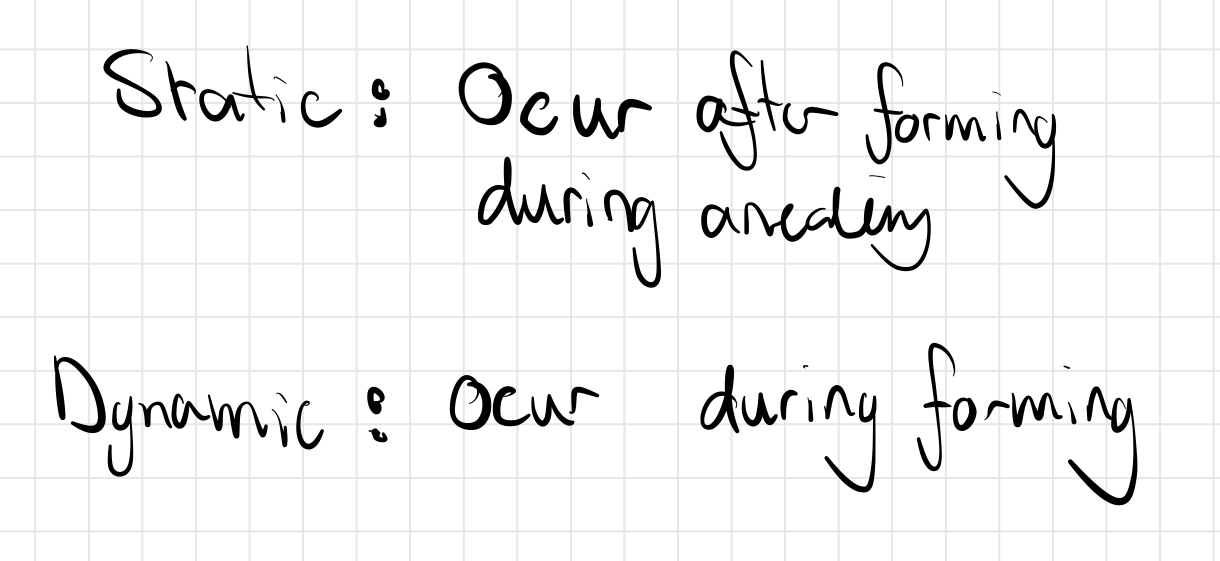 Static: Ocur after forming
during anealing
Dynamic: Ocur during forming